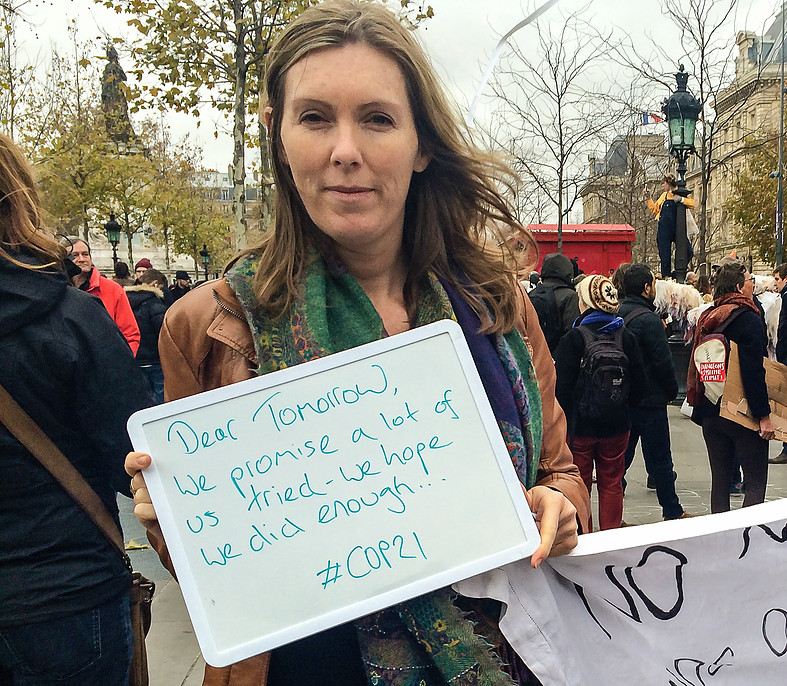 Dear Tomorrow,
we promise a lot of
us tried - we hope
we did enough...
#COP21
NO
CHANGEONS
SYSTÈME
CLIMAT